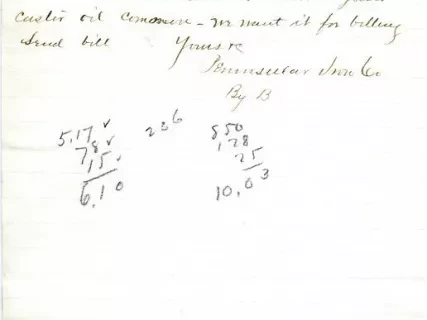 castor oil common - we want it for billing
Send bill Yours &c
Peninsular Iron Co
By B
5.17 ✓ 236 850
78 ✓ 1,28
,15 ✓ 25
6,10 10,03